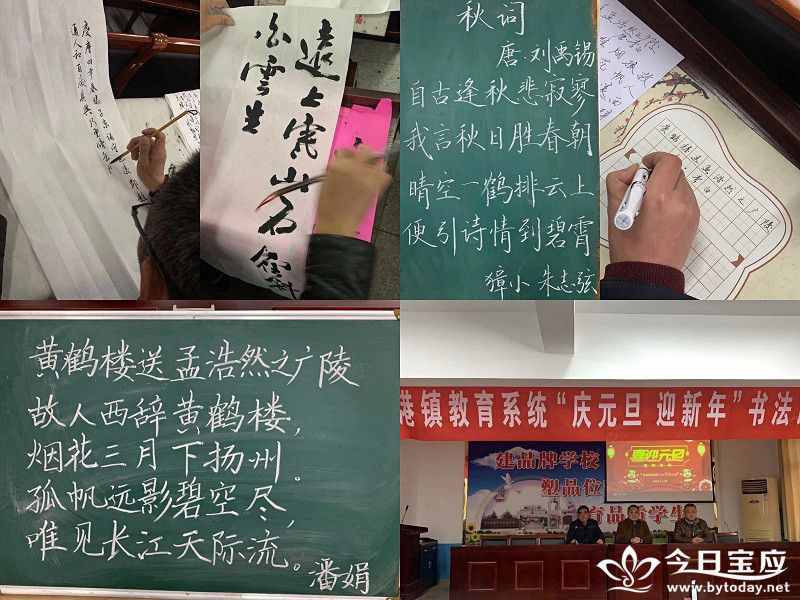 通人和百废具兴乃重修
遠上寒山石径斜
白雲生
秋词
唐·刘禹锡
自古逢秋悲寂寥
我言秋日胜春朝
晴空一鹤排云上
便引诗情到碧霄
獐小 朱志弦
黄鹤楼送孟浩然之广陵
李白
黄鹤楼送孟浩然之广陵
故人西辞黄鹤楼，
烟花三月下扬州。
孤帆远影碧空尽，
唯见长江天际流。
潘娟
港镇教育系统“庆元旦 迎新年”书法
建品牌学校
塑品位
育品质学生
喜迎元旦
今日宝应
www.bytoday.net